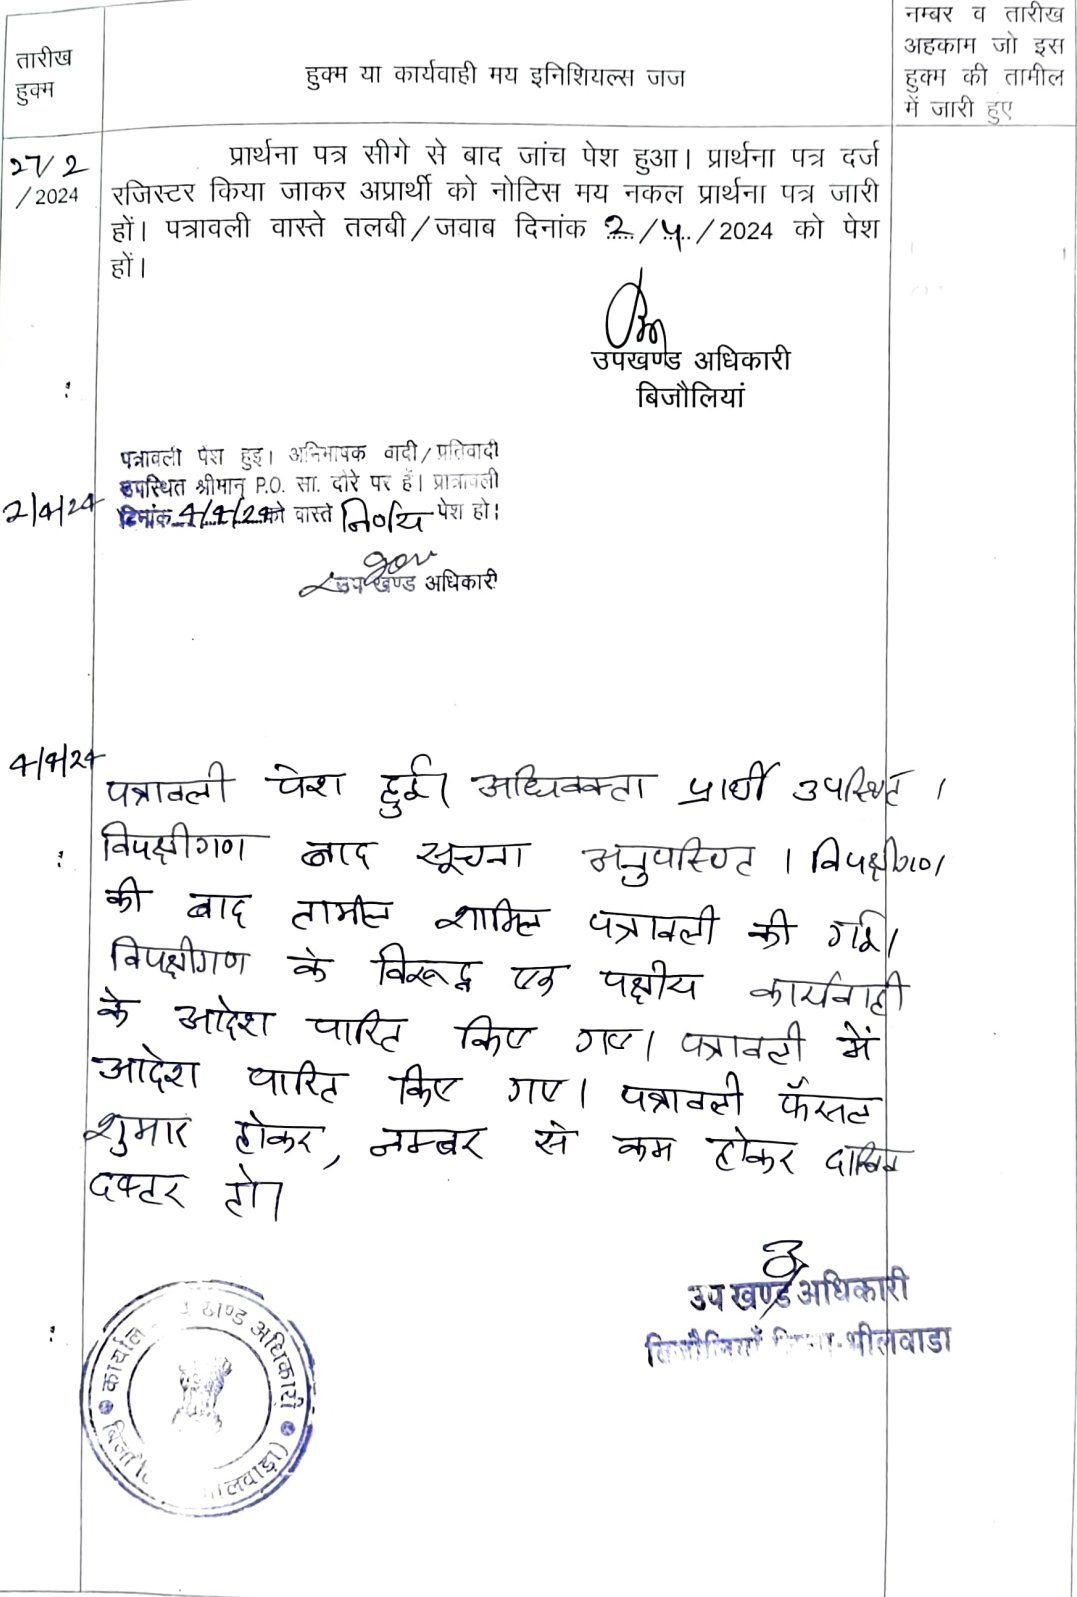 तारीख
हुक्म
हुक्म या कार्यवाही मय इनिशियल्स जज
नम्बर व तारीख
अहकाम जो इस
हुक्म की तामील
में जारी हुए
27/2
/2024
प्रार्थना पत्र सीगे से बाद जांच पेश हुआ। प्रार्थना पत्र दर्ज
रजिस्टर किया जाकर अप्रार्थी को नोटिस मय नकल प्रार्थना पत्र जारी
हों। पत्रावली वास्ते तलबी/जवाब दिनांक 2/4/2024 को पेश
हों।
उपखण्ड अधिकारी
बिजौलियां
पत्रावली पेश हुइ। अभिभाषक वादी/प्रतिवादी
उपस्थित श्रीमान् P.O. सा. दौरे पर हैं। पत्रावली
2/4/24
दिनांक 4/4/24 को वास्ते निर्णय पेश हो।
उप खण्ड अधिकारी
4/4/24
पत्रावली पेश हुई। अधिवक्ता प्रार्थी उपस्थित ।
विपक्षीगण बाद सूचना अनुपस्थित । विपक्षीगण
की बाद तामील शामिल पत्रावली की गई।
विपक्षीगण के विरूद्ध एक पक्षीय कार्यवाही
के आदेश पारित किए गए। पत्रावली में
आदेश पारित किए गए। पत्रावली फैसल
शुमार होकर, नम्बर से कम होकर दाखिल
दफ्टर हो।
उप खण्ड अधिकारी
बिजौलियाँ जिला-भीलवाडा
खण्ड अधिकारी